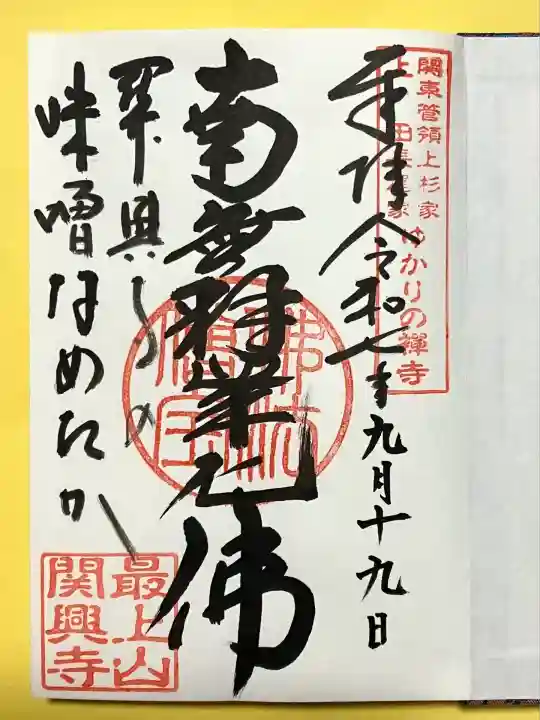 関東管領上杉家
上田長尾家 ゆかりの禅寺
奉拝 令和七年九月十九日
南無釈迦牟尼佛
佛法僧宝
関興寺の
味噌なめたか
最上山
関興寺